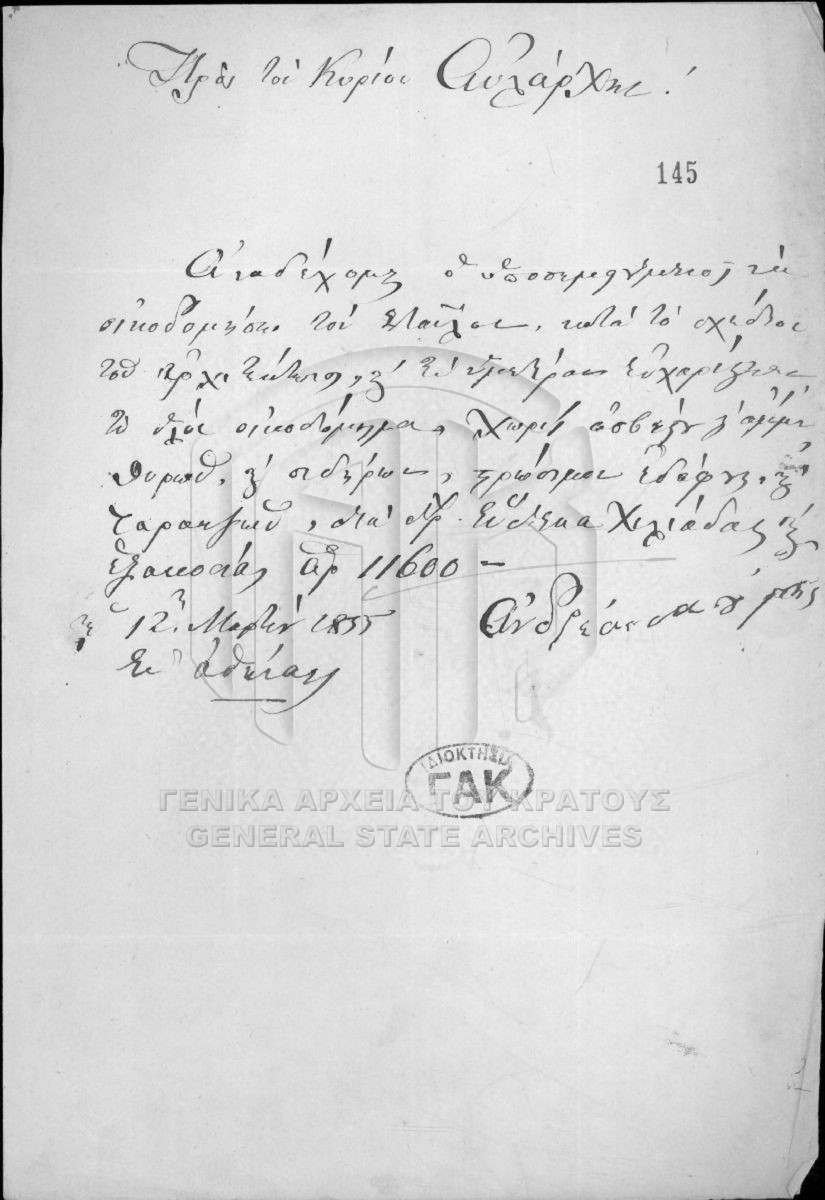 Πρὸς τὸν Κύριον Αὐλάρχην!
145
Ἀναδέχομαι ὁ ὑποσημειούμενος νὰ
οἰκοδομήσω τὸν σταῦλον, κατὰ τὸ σχέδιον
τοῦ ἀρχιτέκτονος, κ' εὐχαρίστησιν
τὸ οἰκοδόμημα, χωρὶς ἀσβέστη κ' ἄμμου
θυρῶν, κ' σιδήρων, ἐδάφη, κ'
διὰ δρ. Ἕνδεκα Χιλιάδας κ'
ἑξακοσίας ἀρ 11600 -
τῇ 12 Μαρτίου 1855 Ἀνδρέας
Ἐν Ἀθήναις
ΙΔΙΟΚΤΗΣΙΑ
ΓΑΚ
ΓΕΝΙΚΑ ΑΡΧΕΙΑ ΤΟΥ ΚΡΑΤΟΥΣ
GENERAL STATE ARCHIVES